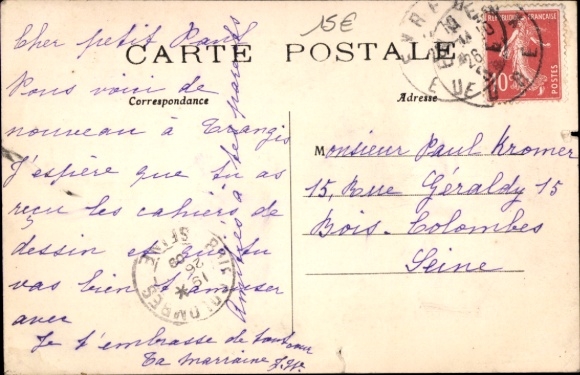 15€
CARTE POSTALE
Correspondance
Adresse
REPUBLIQUE FRANÇAISE
10c
POSTES
Cher petit Paul
Vous voici de
nouveau à Trangis
J'espère que tu as
reçu les cahiers de
dessin et que tu
vas bien t'amuser
avec
Je t'embrasse de tout cœur
Ta marraine
Amitiés à tes parents
Monsieur Paul Kromer
15, Rue Géraldy 15
Bois-Colombes
Seine
EURE
BOIS COLOMBES
SEINE
19 *
26
09